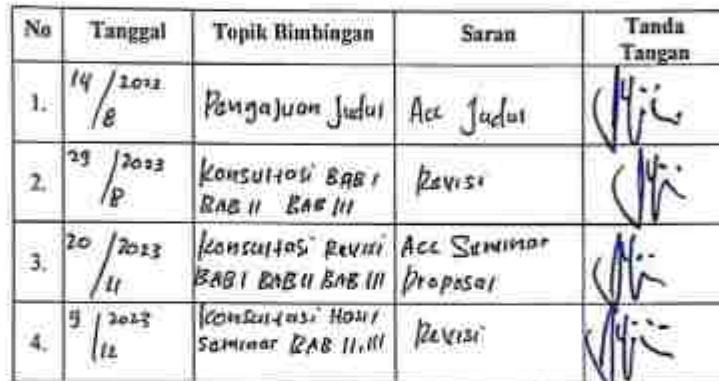 No Tanggal Topik Bimbingan Saran Tanda Tangan
1. 14/8 2022 Pengajuan Judul Acc Judul
2. 29/8 2023 Konsultasi BAB I Revisi
BAB II BAB III
3. 20/11 2023 Konsultasi Revisi Acc Seminar
BAB I BAB II BAB III Proposal
4. 9/12 2023 Konsultasi Hasil Revisi
Seminar BAB II, III